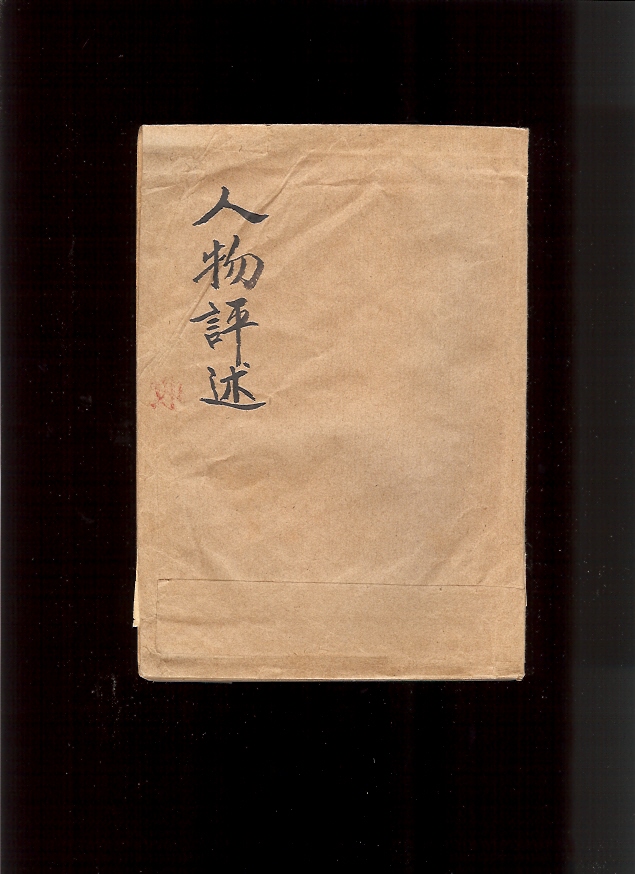 人物評述